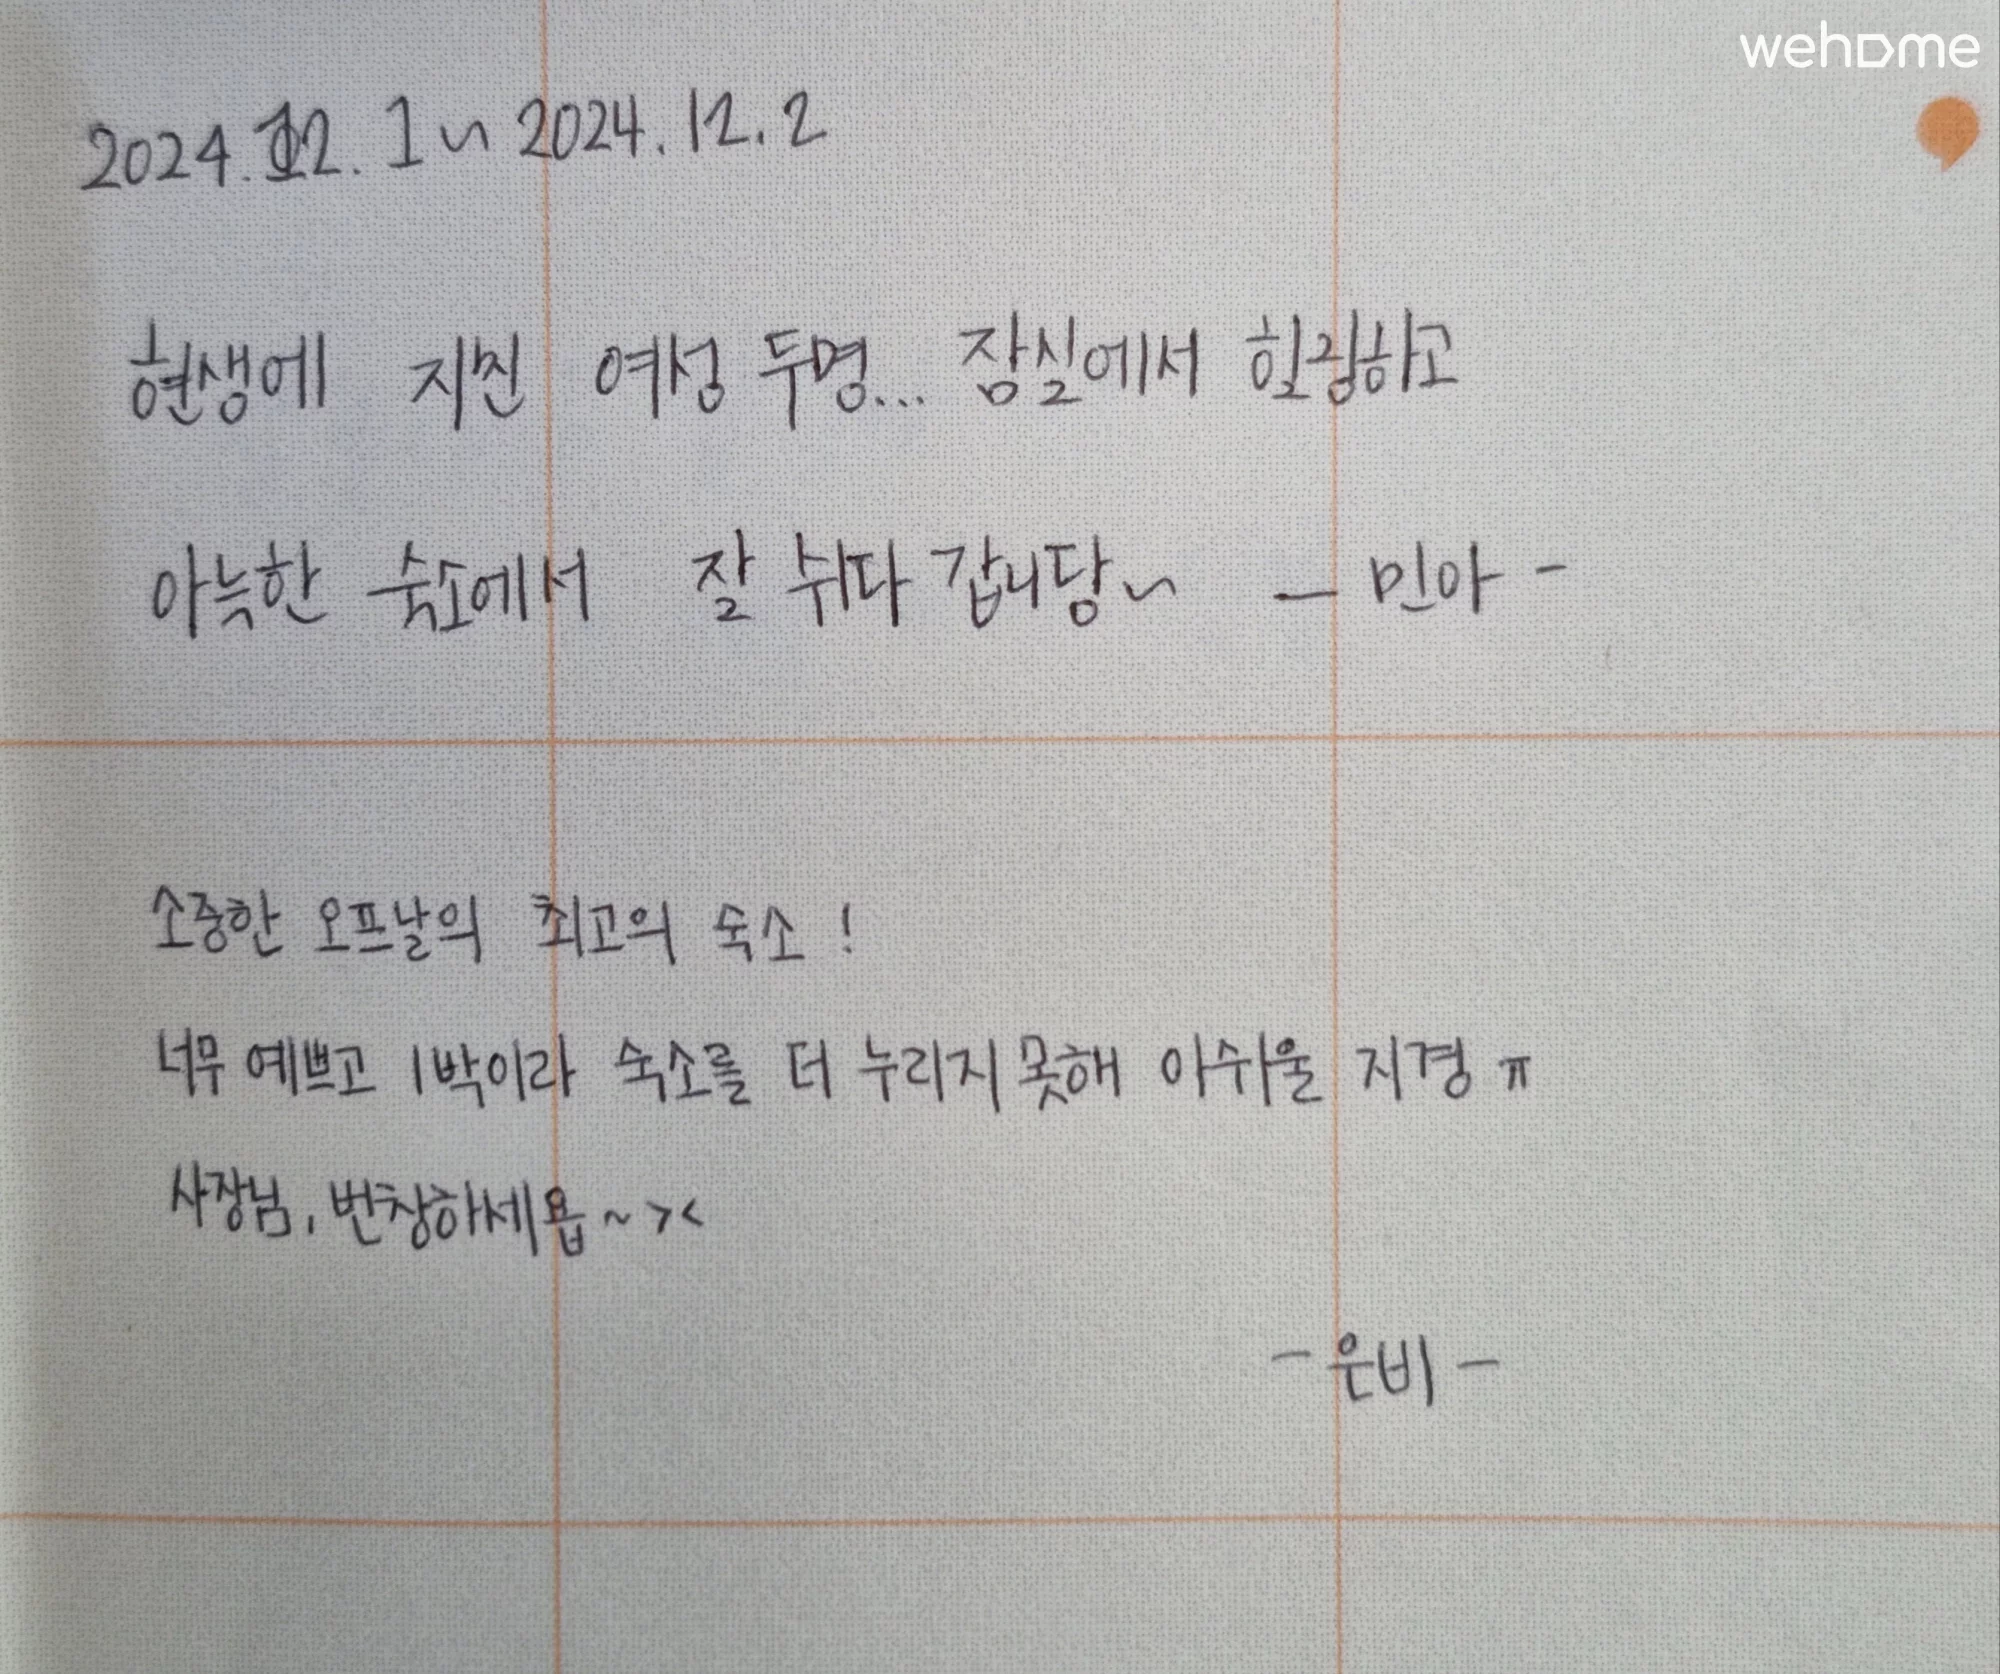 wehome
2024.12.1~2024.12.2
현생에 지친 여성 두명... 잠실에서 힐링하고
아늑한 숙소에서 잘 쉬다 갑니당~ - 민아 -
소중한 오프날의 최고의 숙소!
너무 예쁘고 1박이라 숙소를 더 누리지 못해 아쉬울 지경 ㅠ
사장님, 번창하세욥~><
- 은비 -